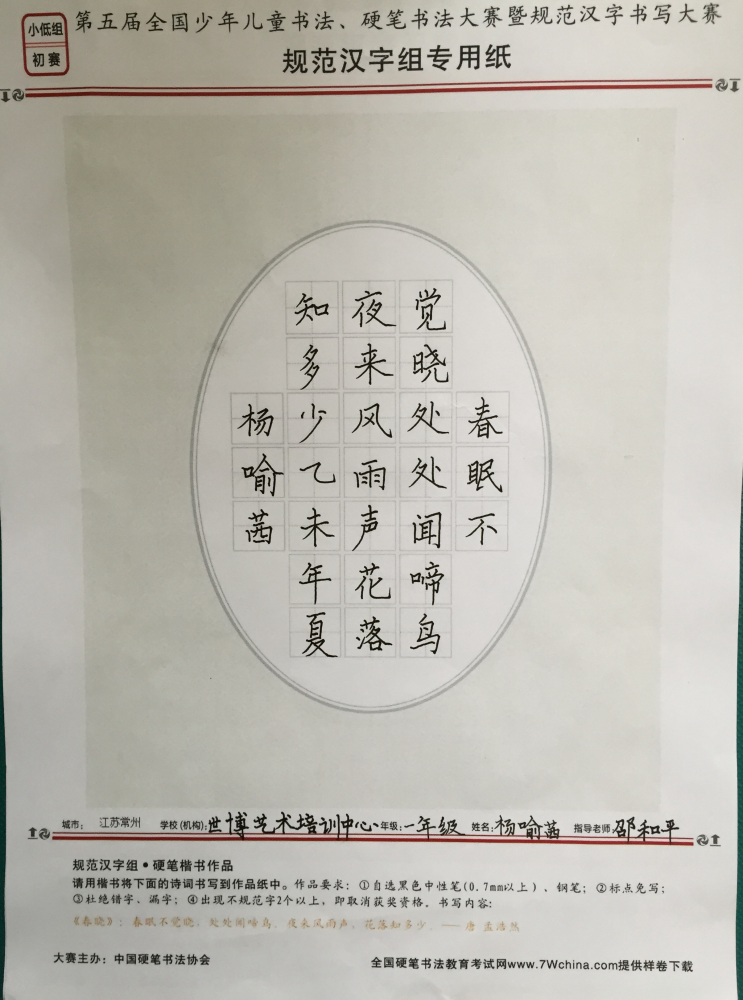 小低组
初赛
第五届全国少年儿童书法、硬笔书法大赛暨规范汉字书写大赛
规范汉字组专用纸
春眠不
觉晓处处闻啼鸟
夜来风雨声花落
知多少乙未年夏
杨喻茜
城市： 江苏常州 学校(机构)：世博艺术培训中心 年级：一年级 姓名：杨喻茜 指导老师 邵和平
规范汉字组•硬笔楷书作品
请用楷书将下面的诗词书写到作品纸中。作品要求：①自选黑色中性笔(0.7mm以上)、钢笔；②标点免写；
③杜绝错字、漏字；④出现不规范字2个以上，即取消获奖资格。书写内容：
《春晓》：春眠不觉晓，处处闻啼鸟。夜来风雨声，花落知多少。——唐 孟浩然
大赛主办：中国硬笔书法协会 全国硬笔书法教育考试网www.7Wchina.com提供样卷下载